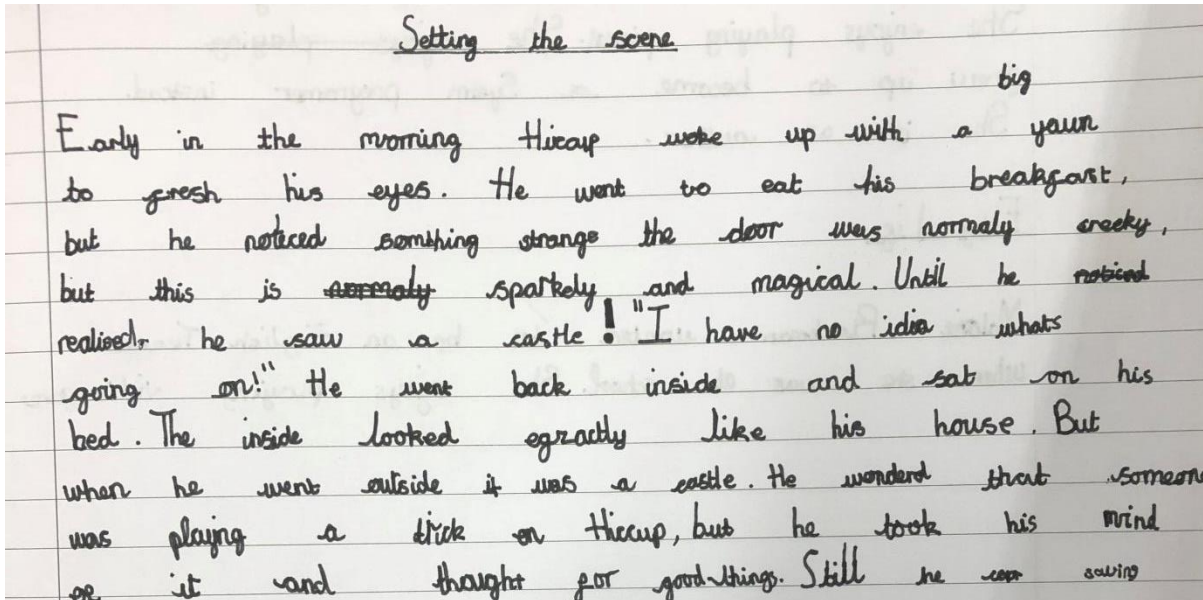 Setting the scene
big
Early in the morning Hiccup woke up with a yawn
to fresh his eyes. He went to eat his breakfast,
but he noticed somthing strange the door was normaly creeky,
but this is normaly sparkely and magical. Until he noticed
realised, he saw a castle! "I have no idia whats
going on!" He went back inside and sat on his
bed. The inside looked egractly like his house. But
when he went outside it was a castle. He wonderd that someone
was playing a trick on Hiccup, but he took his mind
of it and thought for good things. Still he saving